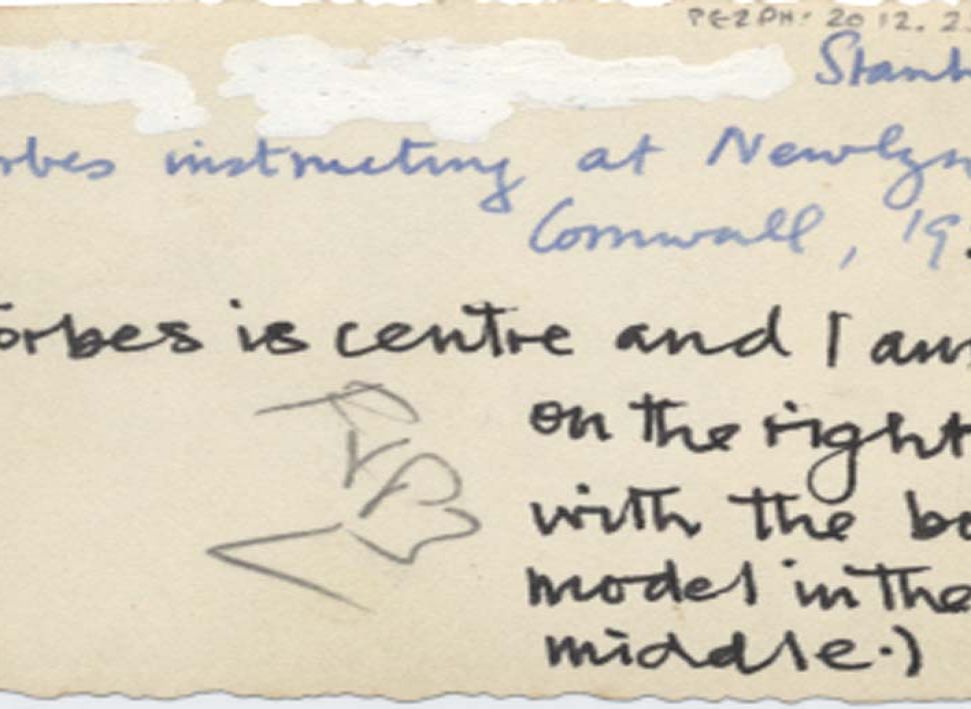 PEZPH: 2012.2
Stanh
rbes instructing at Newlyn
Cornwall, '19
orbes is centre and I am
on the right
with the bo
model in the
middle.)